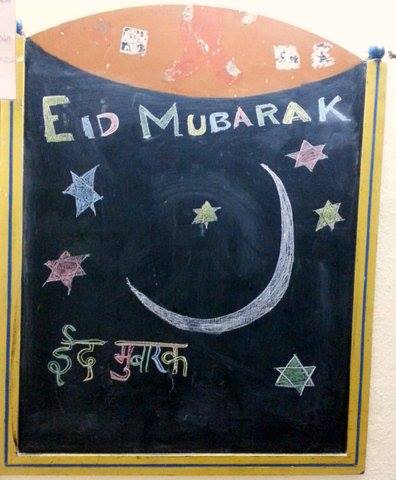 EID MUBARAK
ईद मुबारक